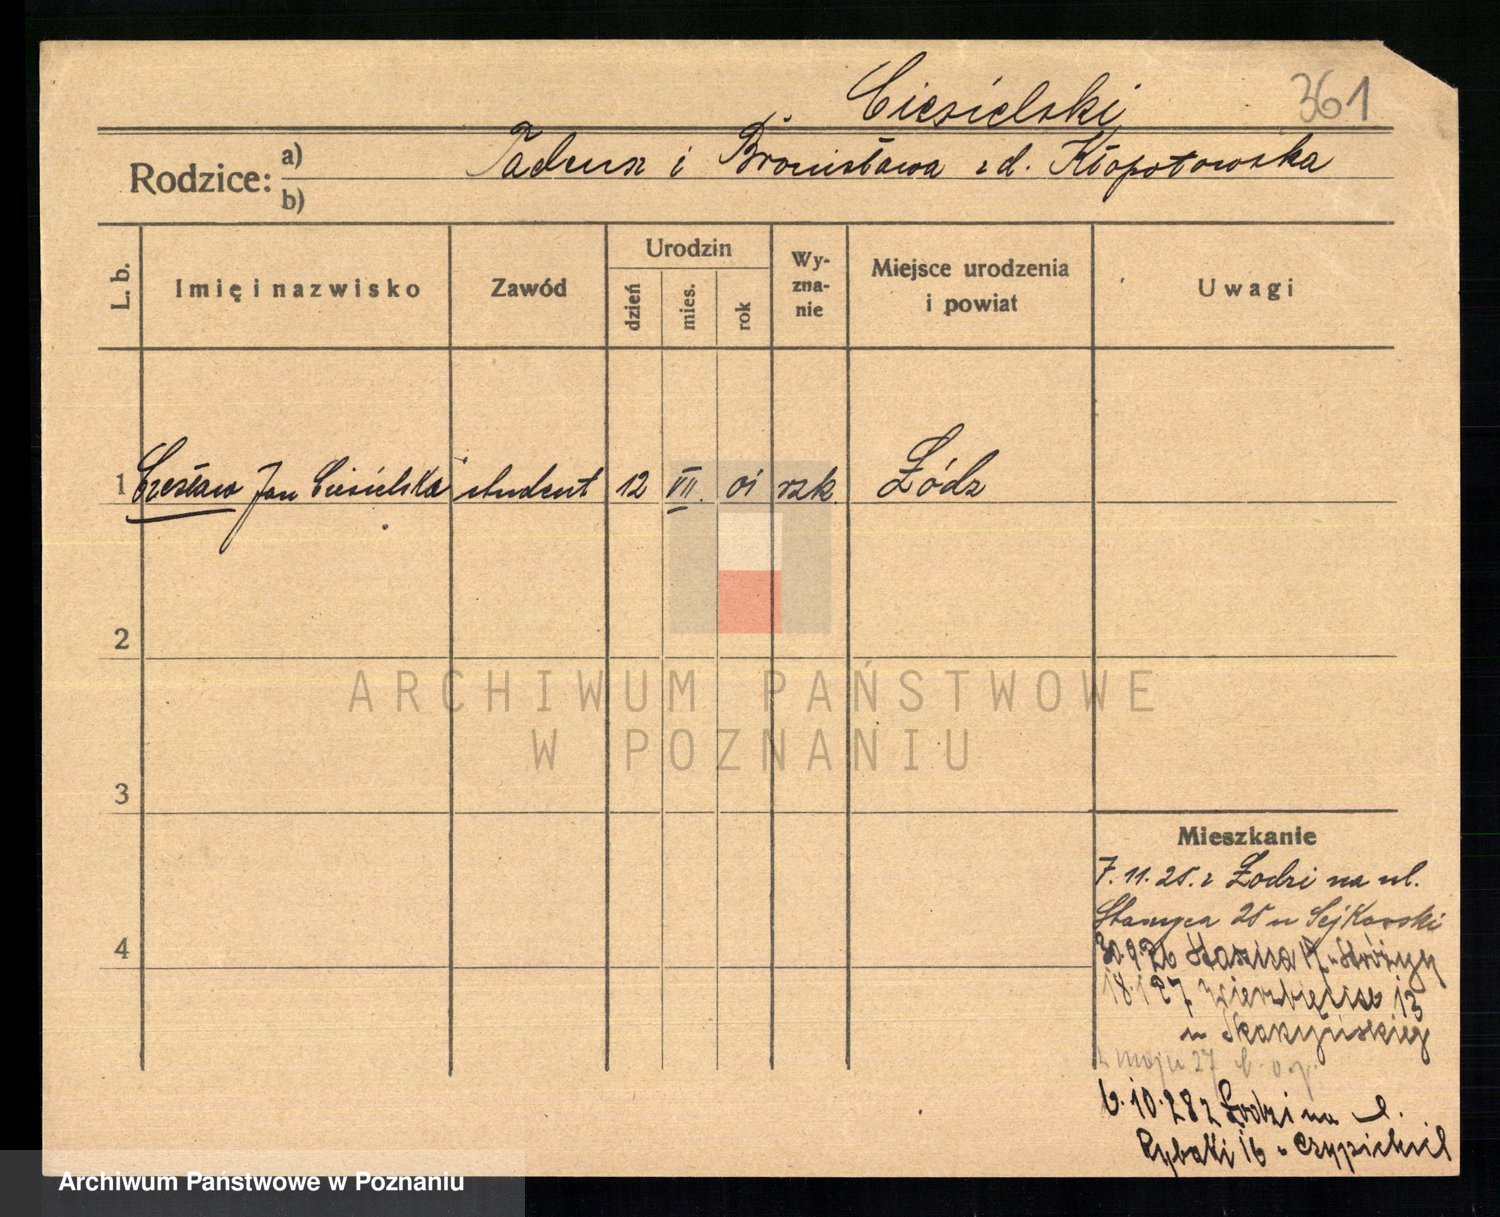 Ciesielski
361
Rodzice: a) b)
Tadeusz i Bronisława z d. Kłopotowska
L. b.
Imię i nazwisko
Zawód
Urodzin
dzień
mies.
rok
Wy-
zna-
nie
Miejsce urodzenia
i powiat
Uwagi
1 Czesław Jan Ciesielski student 12 VII. 01 rzk Łódz
2
ARCHIWUM PAŃSTWOWE
W POZNANIU
3
Mieszkanie
7.11.25. z Łodzi na ul.
25 u
4
30 9 26
18.1 27 Wierzbięcice 13
u
maju 27
6.10.28 z Łodzi na ul.
Rybaki 16 u
Archiwum Państwowe w Poznaniu